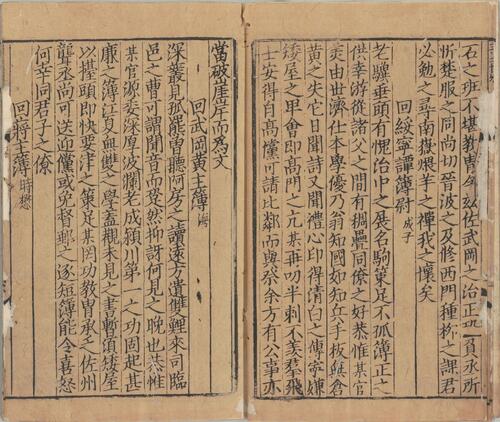 石之班不堪教冑茲佐武岡之治正孔負丞所
忻楚服之同尚切晉波之及修西門種柳之課君
必勉之尋南嶽煨芋之禪我之懷矣
回綏寧譚簿尉成子
老驥垂頭有愧治中之展名駒策足不孤簿正之
供幸游從諸父之間有稠疊同僚之好恭惟某官
奕由世濟仕本學優乃翁知國如知兵手板無倉
黃之失它日聞詩又聞禮心印得清白之傳寧嫌
矮屋之卑會即高門之亢某毋切半刺不羨羣飛
士安得自高儻可請比鄰而與祭余方有公事亦
當破崖岸而為文
回武岡黃主簿
深叢見孤羆嘗聽阿房之讀遠方遺雙鯉來司臨
邑之曹可謂聞音而跫然抑訝何見之晚也恭惟
某官源委深厚波瀾老成潁川第一之功固起甚
廉之簿江夏無雙之學蓋觀未見之書暫須矮屋
以擡頭即快要津之策足某罔功教冑承乏佐州
聾丞尚可送迎儻或免督郵之逐短簿能令喜怒
何幸同君子之僚
回蔣主簿時懋